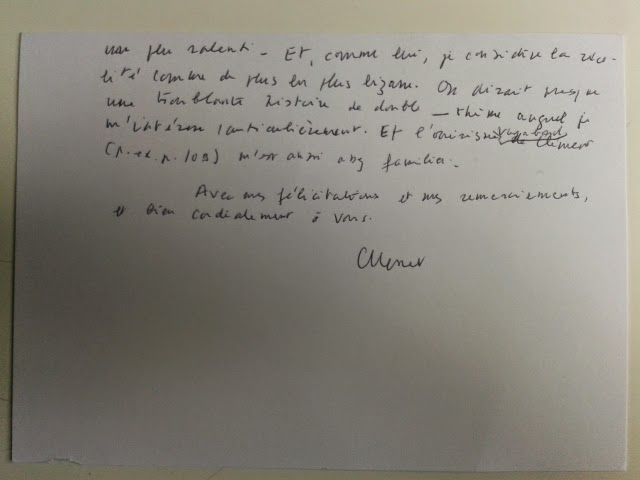 un peu ralenti – Et, comme lui, je considère la réa-
lité comme de plus en plus bizarre. On dirait presque
une troublante histoire de double – thème auquel je
m'intéresse particulièrement. Et l'onirisme vagabond de Clément
(p. ex. p. 108) m'est aussi assez familier.
Avec mes félicitations et mes remerciements,
et bien cordialement à vous.